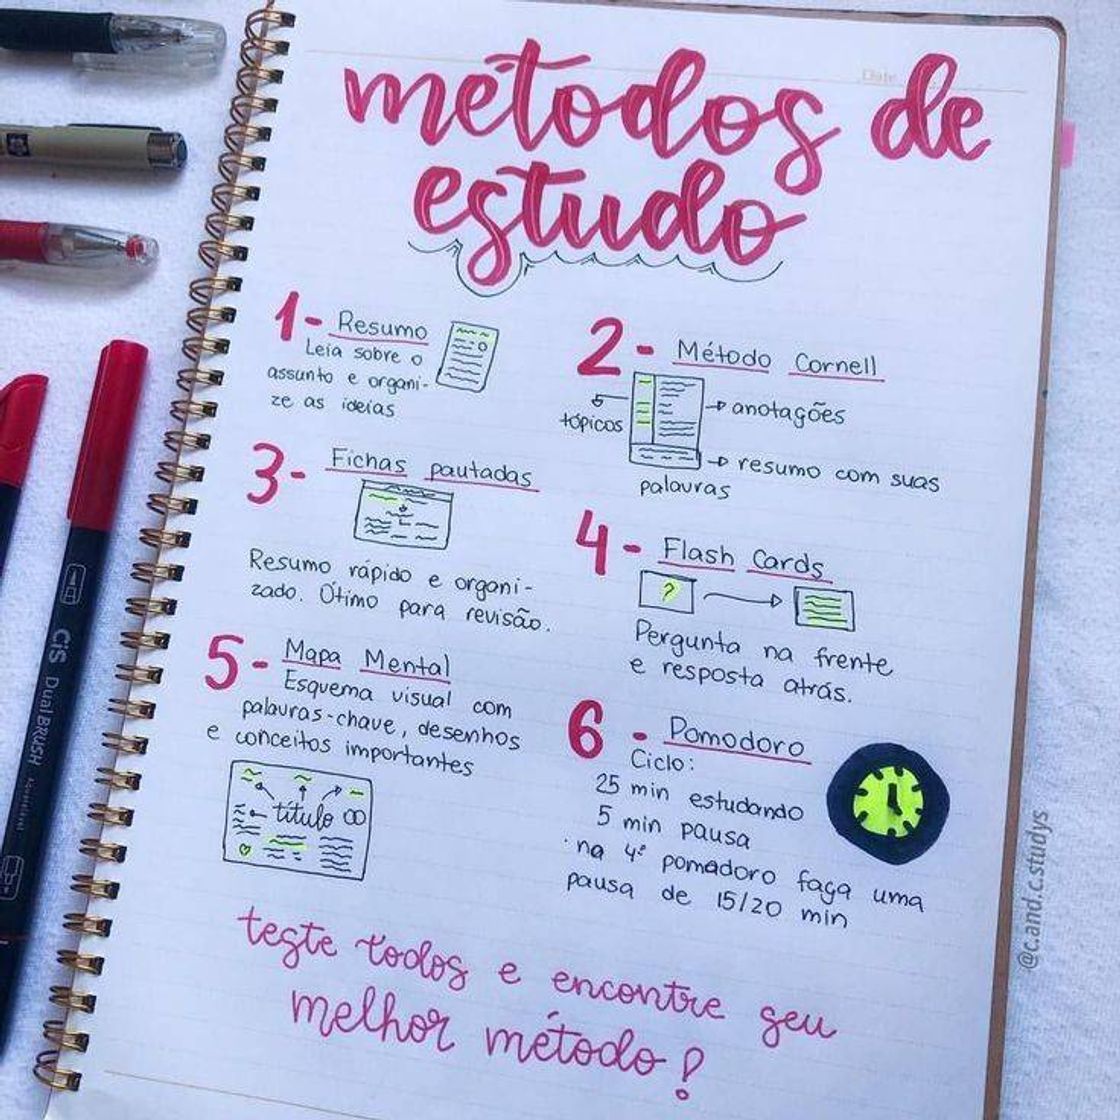 Date
métodos de
estudo
1- Resumo
Leia sobre o
assunto e organi-
ze as ideias
2- Método Cornell
tópicos
anotações
resumo com suas
palavras
3- Fichas pautadas
Resumo rápido e organi-
zado. Ótimo para revisão.
4- Flash Cards
?
Pergunta na frente
e resposta atrás.
5- Mapa Mental
Esquema visual com
palavras-chave, desenhos
e conceitos importantes
título
6- Pomodoro
Ciclo:
25 min estudando
5 min pausa
· na 4º pomadoro faça uma
pausa de 15/20 min
teste todos e encontre seu
melhor método!
CiS Dual BRUSH Aquarelável
@c.and.c.studys